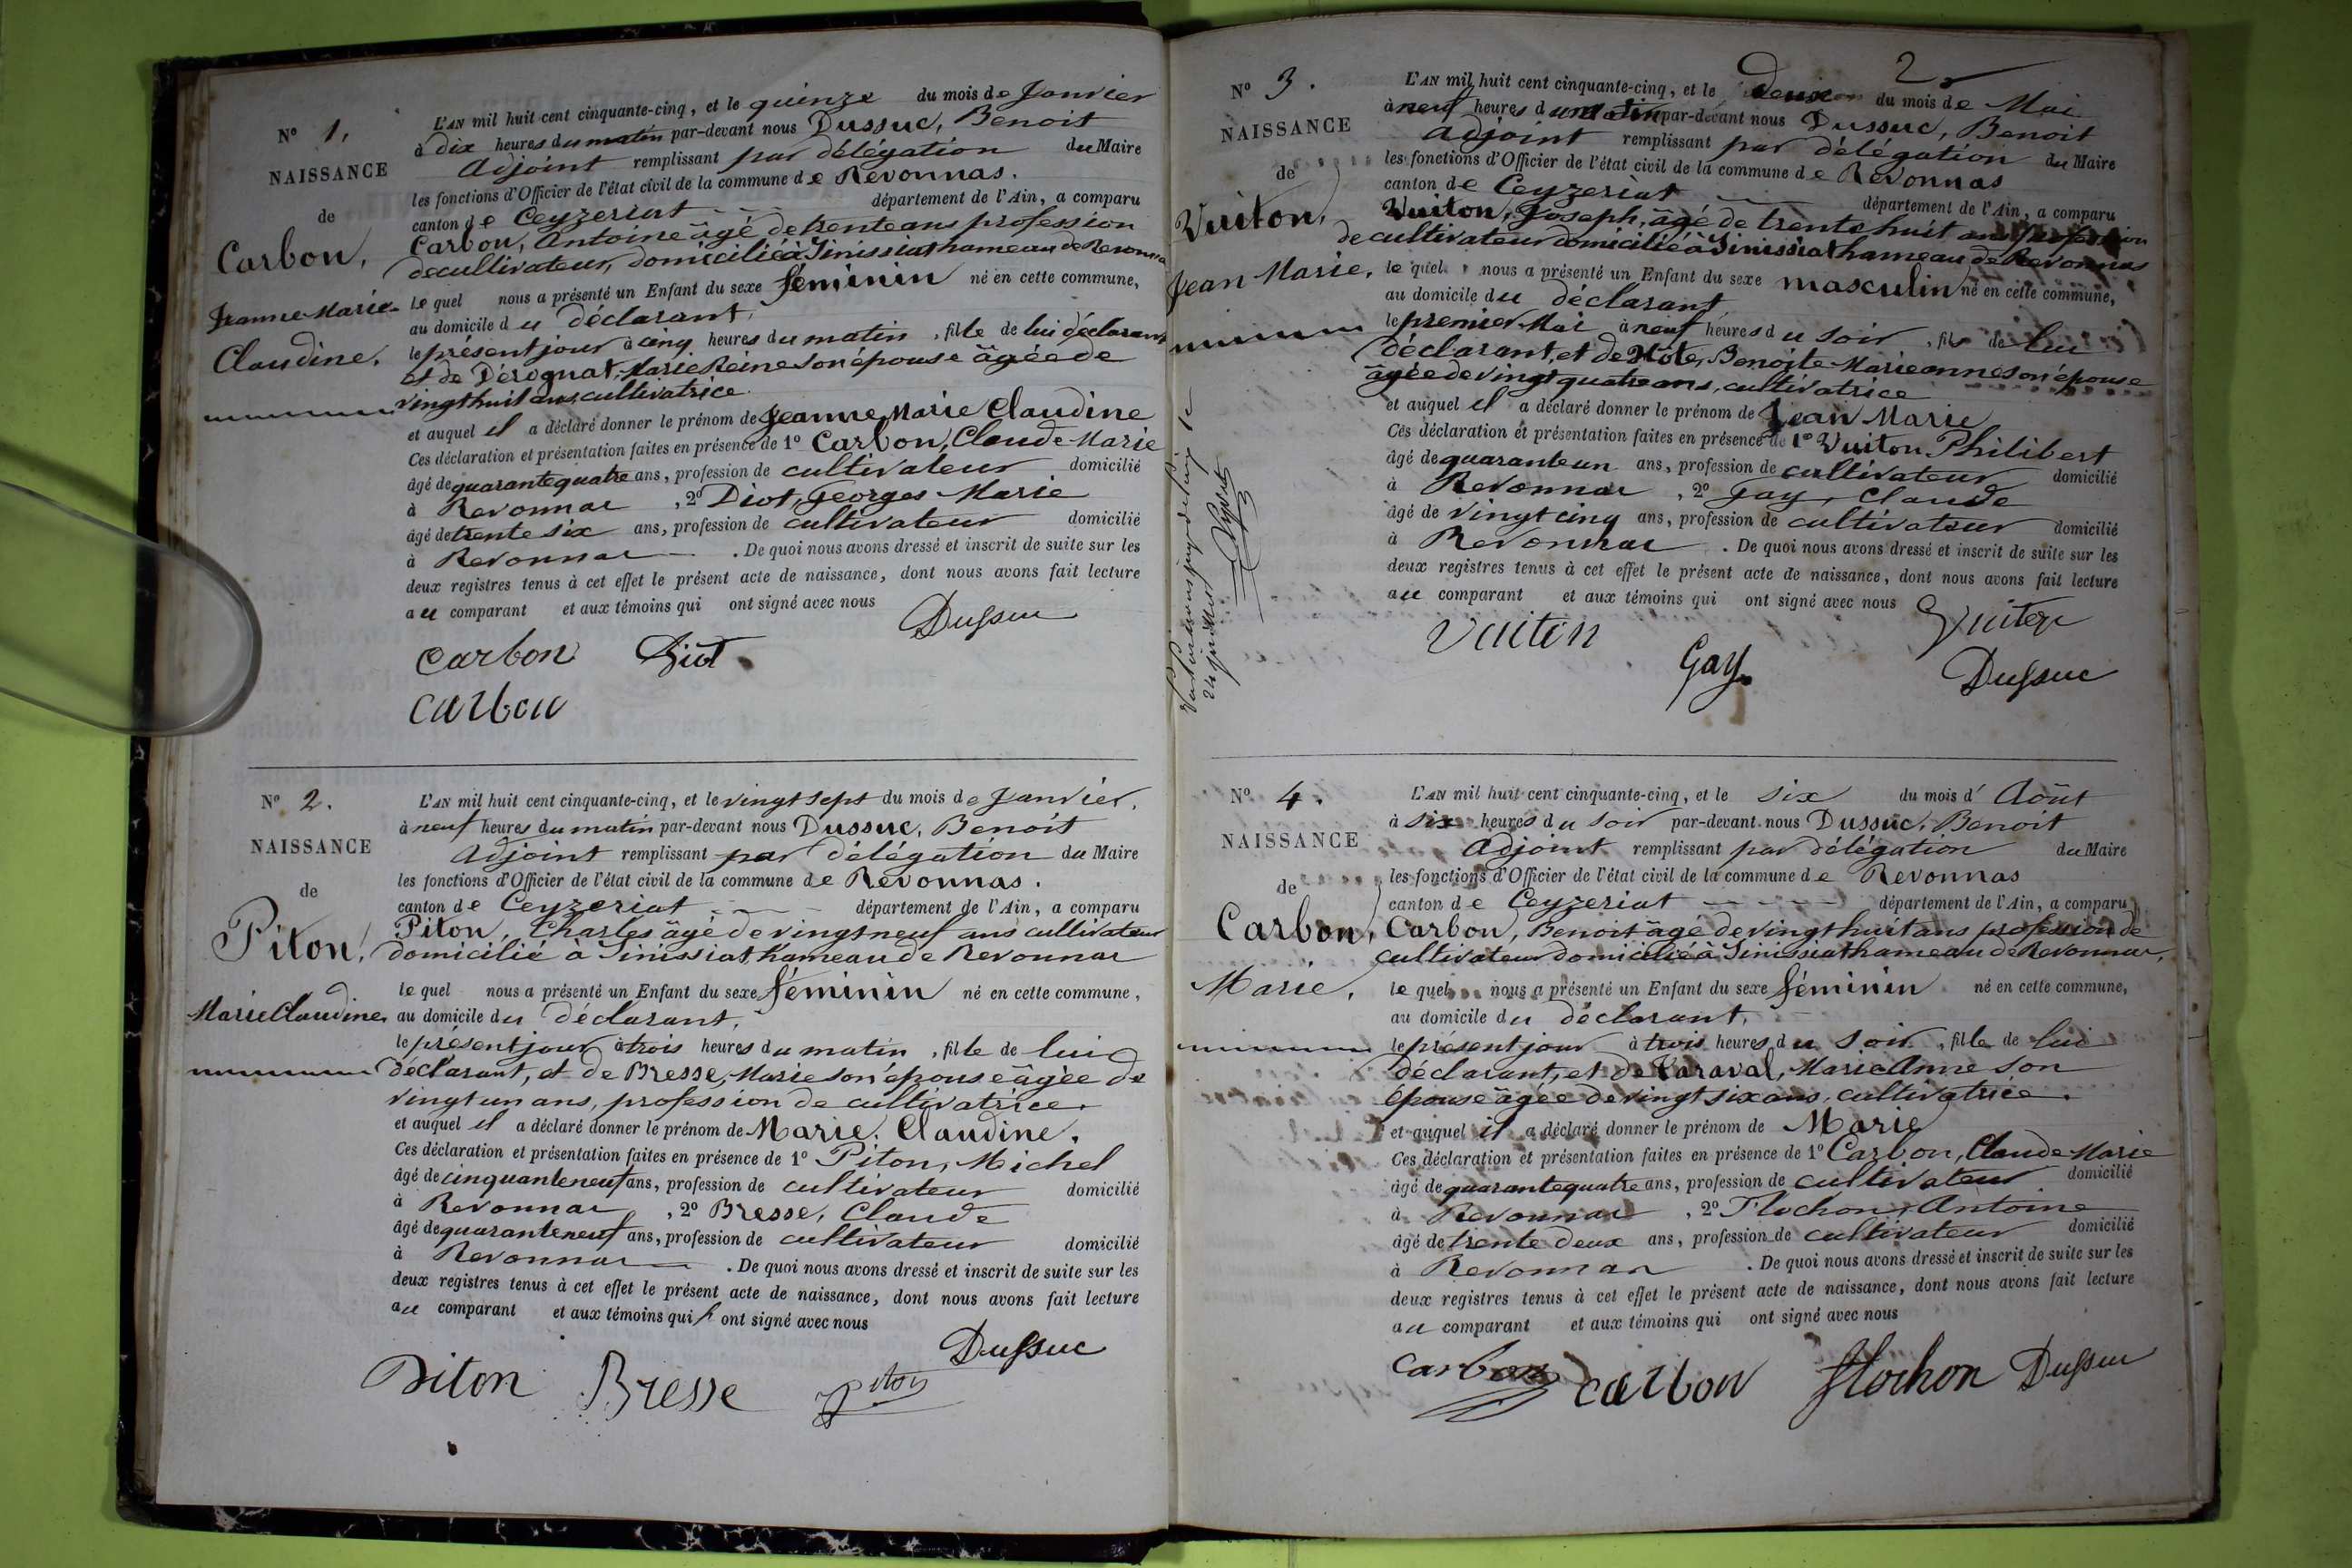 N° 1.
NAISSANCE
de
Carbon,
Jeanne-Marie-
Claudine.
L'AN mil huit cent cinquante-cinq, et le quinze du mois de Janvier
à dix heures du matin par-devant nous Dussuc, Benoit
Adjoint remplissant par délégation du Maire
les fonctions d'Officier de l'état civil de la commune de Revonnas.
canton de Ceyzeriat département de l'Ain, a comparu
Carbon, Antoine âgé de trente ans profession
de cultivateur, domicilié à Sinissiat hameau de Revonnas
le quel nous a présenté un Enfant du sexe féminin né en cette commune,
au domicile du déclarant,
le présent jour à cinq heures du matin, fille de lui déclarant
et de Dérognat, Marie Reine son épouse âgée de
vingt huit ans, cultivatrice
et auquel il a déclaré donner le prénom de Jeanne Marie Claudine
Ces déclaration et présentation faites en présence de 1° Carbon, Claude-Marie
âgé de quarante quatre ans, profession de cultivateur domicilié
à Revonnas, 2° Diot, Georges Marie
âgé de trente six ans, profession de cultivateur domicilié
à Revonnas. De quoi nous avons dressé et inscrit de suite sur les
deux registres tenus à cet effet le présent acte de naissance, dont nous avons fait lecture
au comparant et aux témoins qui ont signé avec nous
Dussuc
Carbon Diot
Carbon
N° 2.
NAISSANCE
de
Piton,
Marie Claudine
L'AN mil huit cent cinquante-cinq, et le vingt sept du mois de Janvier,
à neuf heures du matin par-devant nous Dussuc, Benoit
Adjoint remplissant par délégation du Maire
les fonctions d'Officier de l'état civil de la commune de Revonnas.
canton de Ceyzeriat département de l'Ain, a comparu
Piton, Charles âgé de vingt neuf ans cultivateur
domicilié à Sinissiat, hameau de Revonnas
le quel nous a présenté un Enfant du sexe féminin né en cette commune,
au domicile du déclarant,
le présent jour à trois heures du matin, fille de lui
déclarant, et de Bresse, Marie son épouse âgée de
vingt un ans, profession de cultivatrice.
et auquel il a déclaré donner le prénom de Marie. Claudine.
Ces déclaration et présentation faites en présence de 1° Piton, Michel
âgé de cinquante neuf ans, profession de cultivateur domicilié
à Revonnas, 2° Bresse, Claude
âgé de quarante neuf ans, profession de cultivateur domicilié
à Revonnas. De quoi nous avons dressé et inscrit de suite sur les
deux registres tenus à cet effet le présent acte de naissance, dont nous avons fait lecture
au comparant et aux témoins qui ont signé avec nous
Dussuc
Piton Bresse Piton
2
N° 3.
NAISSANCE
de
Vuiton,
Jean Marie.
24
L'AN mil huit cent cinquante-cinq, et le Deux du mois de Mai
à neuf heures du matin par-devant nous Dussuc, Benoit
Adjoint remplissant par délégation du Maire
les fonctions d'Officier de l'état civil de la commune de Revonnas
canton de Ceyzeriat département de l'Ain, a comparu
Vuiton, Joseph, âgé de trente huit ans profession
de cultivateur domicilié à Sinissiat hameau de Revonnas
le quel nous a présenté un Enfant du sexe masculin né en cette commune,
au domicile du déclarant
le premier Mai à neuf heures du soir, fils de lui
déclarant, et de Hote, Benoite-Marieanne son épouse
âgée de vingt quatre ans, cultivatrice
et auquel il a déclaré donner le prénom de Jean Marie
Ces déclaration et présentation faites en présence de 1° Vuiton Philibert
âgé de quarante un ans, profession de cultivateur domicilié
à Revonnas, 2° Gay, Claude
âgé de vingt cinq ans, profession de cultivateur domicilié
à Revonnas. De quoi nous avons dressé et inscrit de suite sur les
deux registres tenus à cet effet le présent acte de naissance, dont nous avons fait lecture
au comparant et aux témoins qui ont signé avec nous
Vuiton
Vuiton
Gay
Dussuc
N° 4.
NAISSANCE
de
Carbon,
Marie.
L'AN mil huit cent cinquante-cinq, et le six du mois d'Août
à six heures du soir par-devant nous Dussuc, Benoit
Adjoint remplissant par délégation du Maire
les fonctions d'Officier de l'état civil de la commune de Revonnas
canton de Ceyzeriat département de l'Ain, a comparu
Carbon, Benoit âgé de vingt huit ans profession de
cultivateur domicilié à Sinissiat hameau de Revonnas,
le quel nous a présenté un Enfant du sexe féminin né en cette commune,
au domicile du déclarant,
le présent jour à trois heures du soir, fille de lui
déclarant, et de Varaval, Marie Anne son
épouse âgée de vingt six ans, cultivatrice.
et auquel il a déclaré donner le prénom de Marie
Ces déclaration et présentation faites en présence de 1° Carbon, Claude-Marie
âgé de quarante quatre ans, profession de cultivateur domicilié
à Revonnas, 2° Flochon, Antoine
âgé de trente deux ans, profession de cultivateur domicilié
à Revonnas. De quoi nous avons dressé et inscrit de suite sur les
deux registres tenus à cet effet le présent acte de naissance, dont nous avons fait lecture
au comparant et aux témoins qui ont signé avec nous
Carbon Carbon Flochon Dussuc